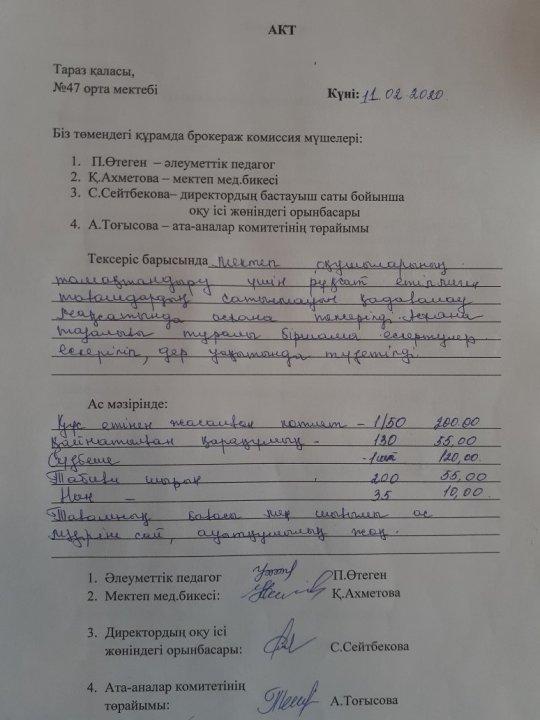 АКТ
Тараз қаласы,
№47 орта мектебі
Күні: 11.02.2020
Біз төмендегі құрамда брокераж комиссия мүшелері:
1. П.Өтеген – әлеуметтік педагог
2. Қ.Ахметова – мектеп мед.бикесі
3. С.Сейтбекова– директордың бастауыш саты бойынша
оқу ісі жөніндегі орынбасары
4. А.Тоғысова – ата-аналар комитетінің төрайымы
Тексеріс барысында мектеп оқушыларының
тамақтандыру үшін рұқсат етілмеген
тағамдардың сатылмауын қадағалау
мақсатында асхана тексерілді. Асхана
тазалығы туралы біршама ескертулер
ескеріліп, дер уақытында түзетілді.
Ас мәзірінде:
Құс етінен жасалған котлет – 1/50 200.00
Қайнатылған қарақұмық - 130 55,00
1шт 120,00
Табиғи шырын 200 55.00
Нан – 35 10,00
Тағамның бағасы мен шығымы ас
мәзіріне сай, ауытқушылық жоқ.
1. Әлеуметтік педагог П.Өтеген
2. Мектеп мед.бикесі: Қ.Ахметова
3. Директордың оқу ісі
жөніндегі орынбасары: С.Сейтбекова
4. Ата-аналар комитетінің
төрайымы: А.Тоғысова